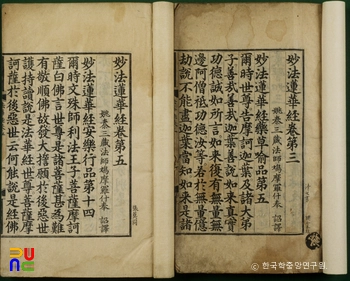 妙法蓮華經卷第三
姚秦三藏法師鳩摩羅什奉 詔譯
妙法蓮華經藥草喻品第五
爾時世尊告摩訶迦葉及諸大弟
子善哉善哉迦葉善說如來真實
功德誠如所言如來復有無量無
邊阿僧祇功德汝等若於無量億
劫說不能盡迦葉當知如來是諸
妙法蓮華經卷第五
姚秦三藏法師鳩摩羅什奉 詔譯
妙法蓮華經安樂行品第十四
爾時文殊師利法王子菩薩摩訶
薩白佛言世尊是諸菩薩甚為難
有敬順佛故發大誓願於後惡世
護持讀說是法華經世尊菩薩摩
訶薩於後惡世云何能說是經佛
한국학중앙연구원